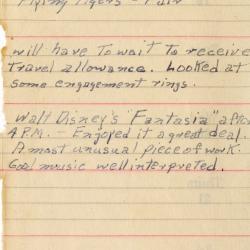 Flying Tigers - Fair
will have to wait to receive
travel allowance. Looked at
some engagement rings.
Walt Disney's "Fantasia" after
4 P.M. - Enjoyed it a great deal.
A most unusual piece of work.
Good music well interpreted.